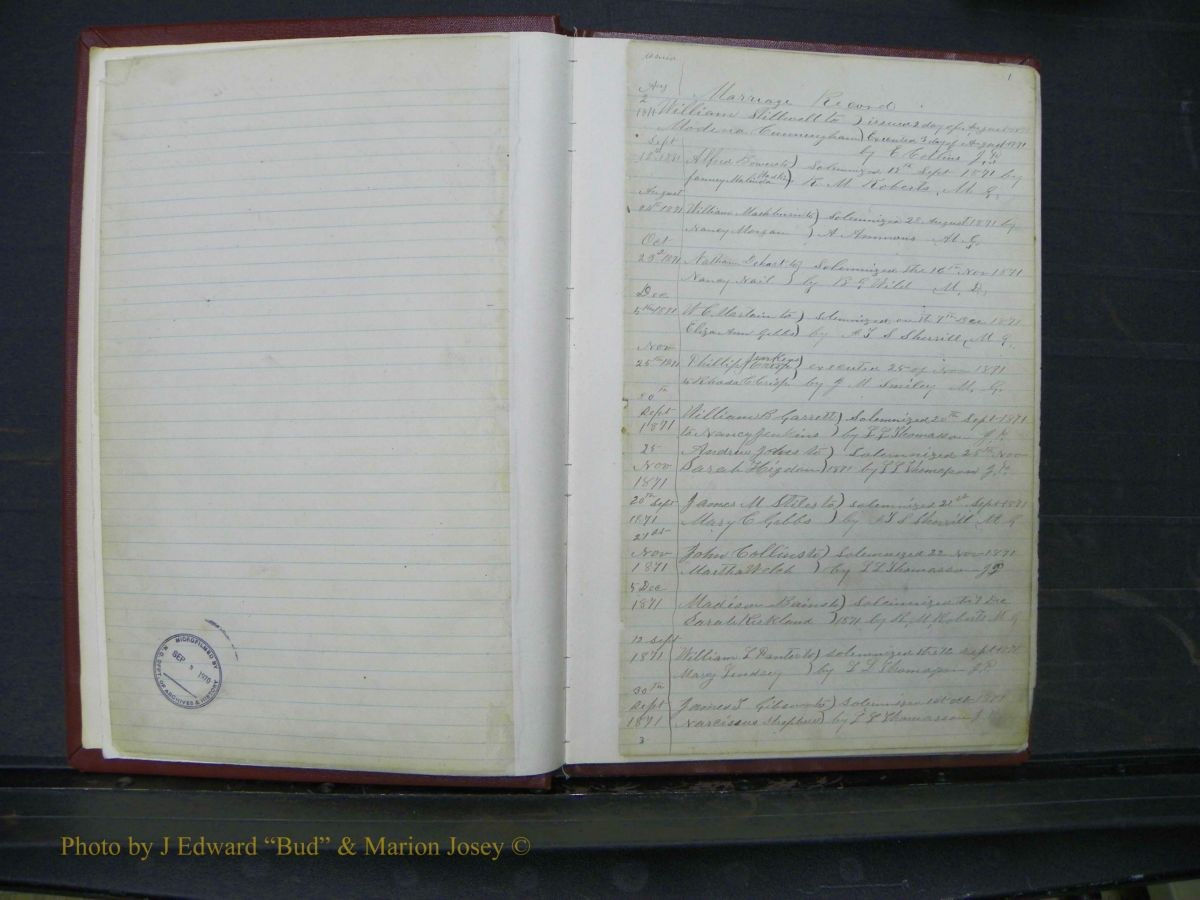 MICROFILMED BY
SEP 3 1970
N.C. DEPT. OF ARCHIVES & HISTORY
1
Marriage Record
Aug
2
1871 William Stillwell to ) issued 2 day of August 1871
Modena Cunningham ) Executed 3 day of August 1871
by E Collins J.P.
Sept
12th 1871 Alfred to ) Solemnized 12th Sept 1871 by
Malinda ) K M Roberts M. G.
August
24th 1871 William Mashburn to ) Solemnized 28 August 1871 by
Nancy Morgan ) A Ammons M. G.
Oct
23d 1871 Nathan Dehart to ) Solemnized the 16th Nov 1871
Nancy Nail ) by B G Wild M. D.
Dec
5th 1871 W C to ) Solemnized on th 7th Dec 1871
Eliza Ann Gibbs ) by S Sherrill, M G.
Nov
25th 1871 Phillip Jenkins ) executed 25 of Nov 1871
to Rhoda C Crisp ) by J M Smiley M. G.
20th
Sept William B Garrett ) Solemnized 20th Sept 1871
1871 to Nancy Jenkins ) by L L Thomasson J. P.
25 Andrew to ) Solemnized 25th Nov
Nov Sarah Higdon ) 1871 by L L Thomason J. P.
1871
20th Sept James M Stiles to ) solemnized 21st Sept 1871
1871 Mary C Gibbs ) by S Sherrill M G
21st
Nov John Collins to ) Solemnized 22 Nov 1871
1871 Martha Welch ) by L L Thomasson J P
5 Dec
1871 Madison to ) Solemnized Dec
Sarah Kirkland ) 1871 by K M Roberts M. G
12 Sept
1871 William L to ) solemnized Sept 1871
Mary Lindsey ) by L L Thomason J P.
30th
Sept James L Gibson to ) Solemnized 1st Oct 1871
1871 Narcissus Shepherd ) by L L Thomasson J
3
Photo by J Edward “Bud” & Marion Josey ©